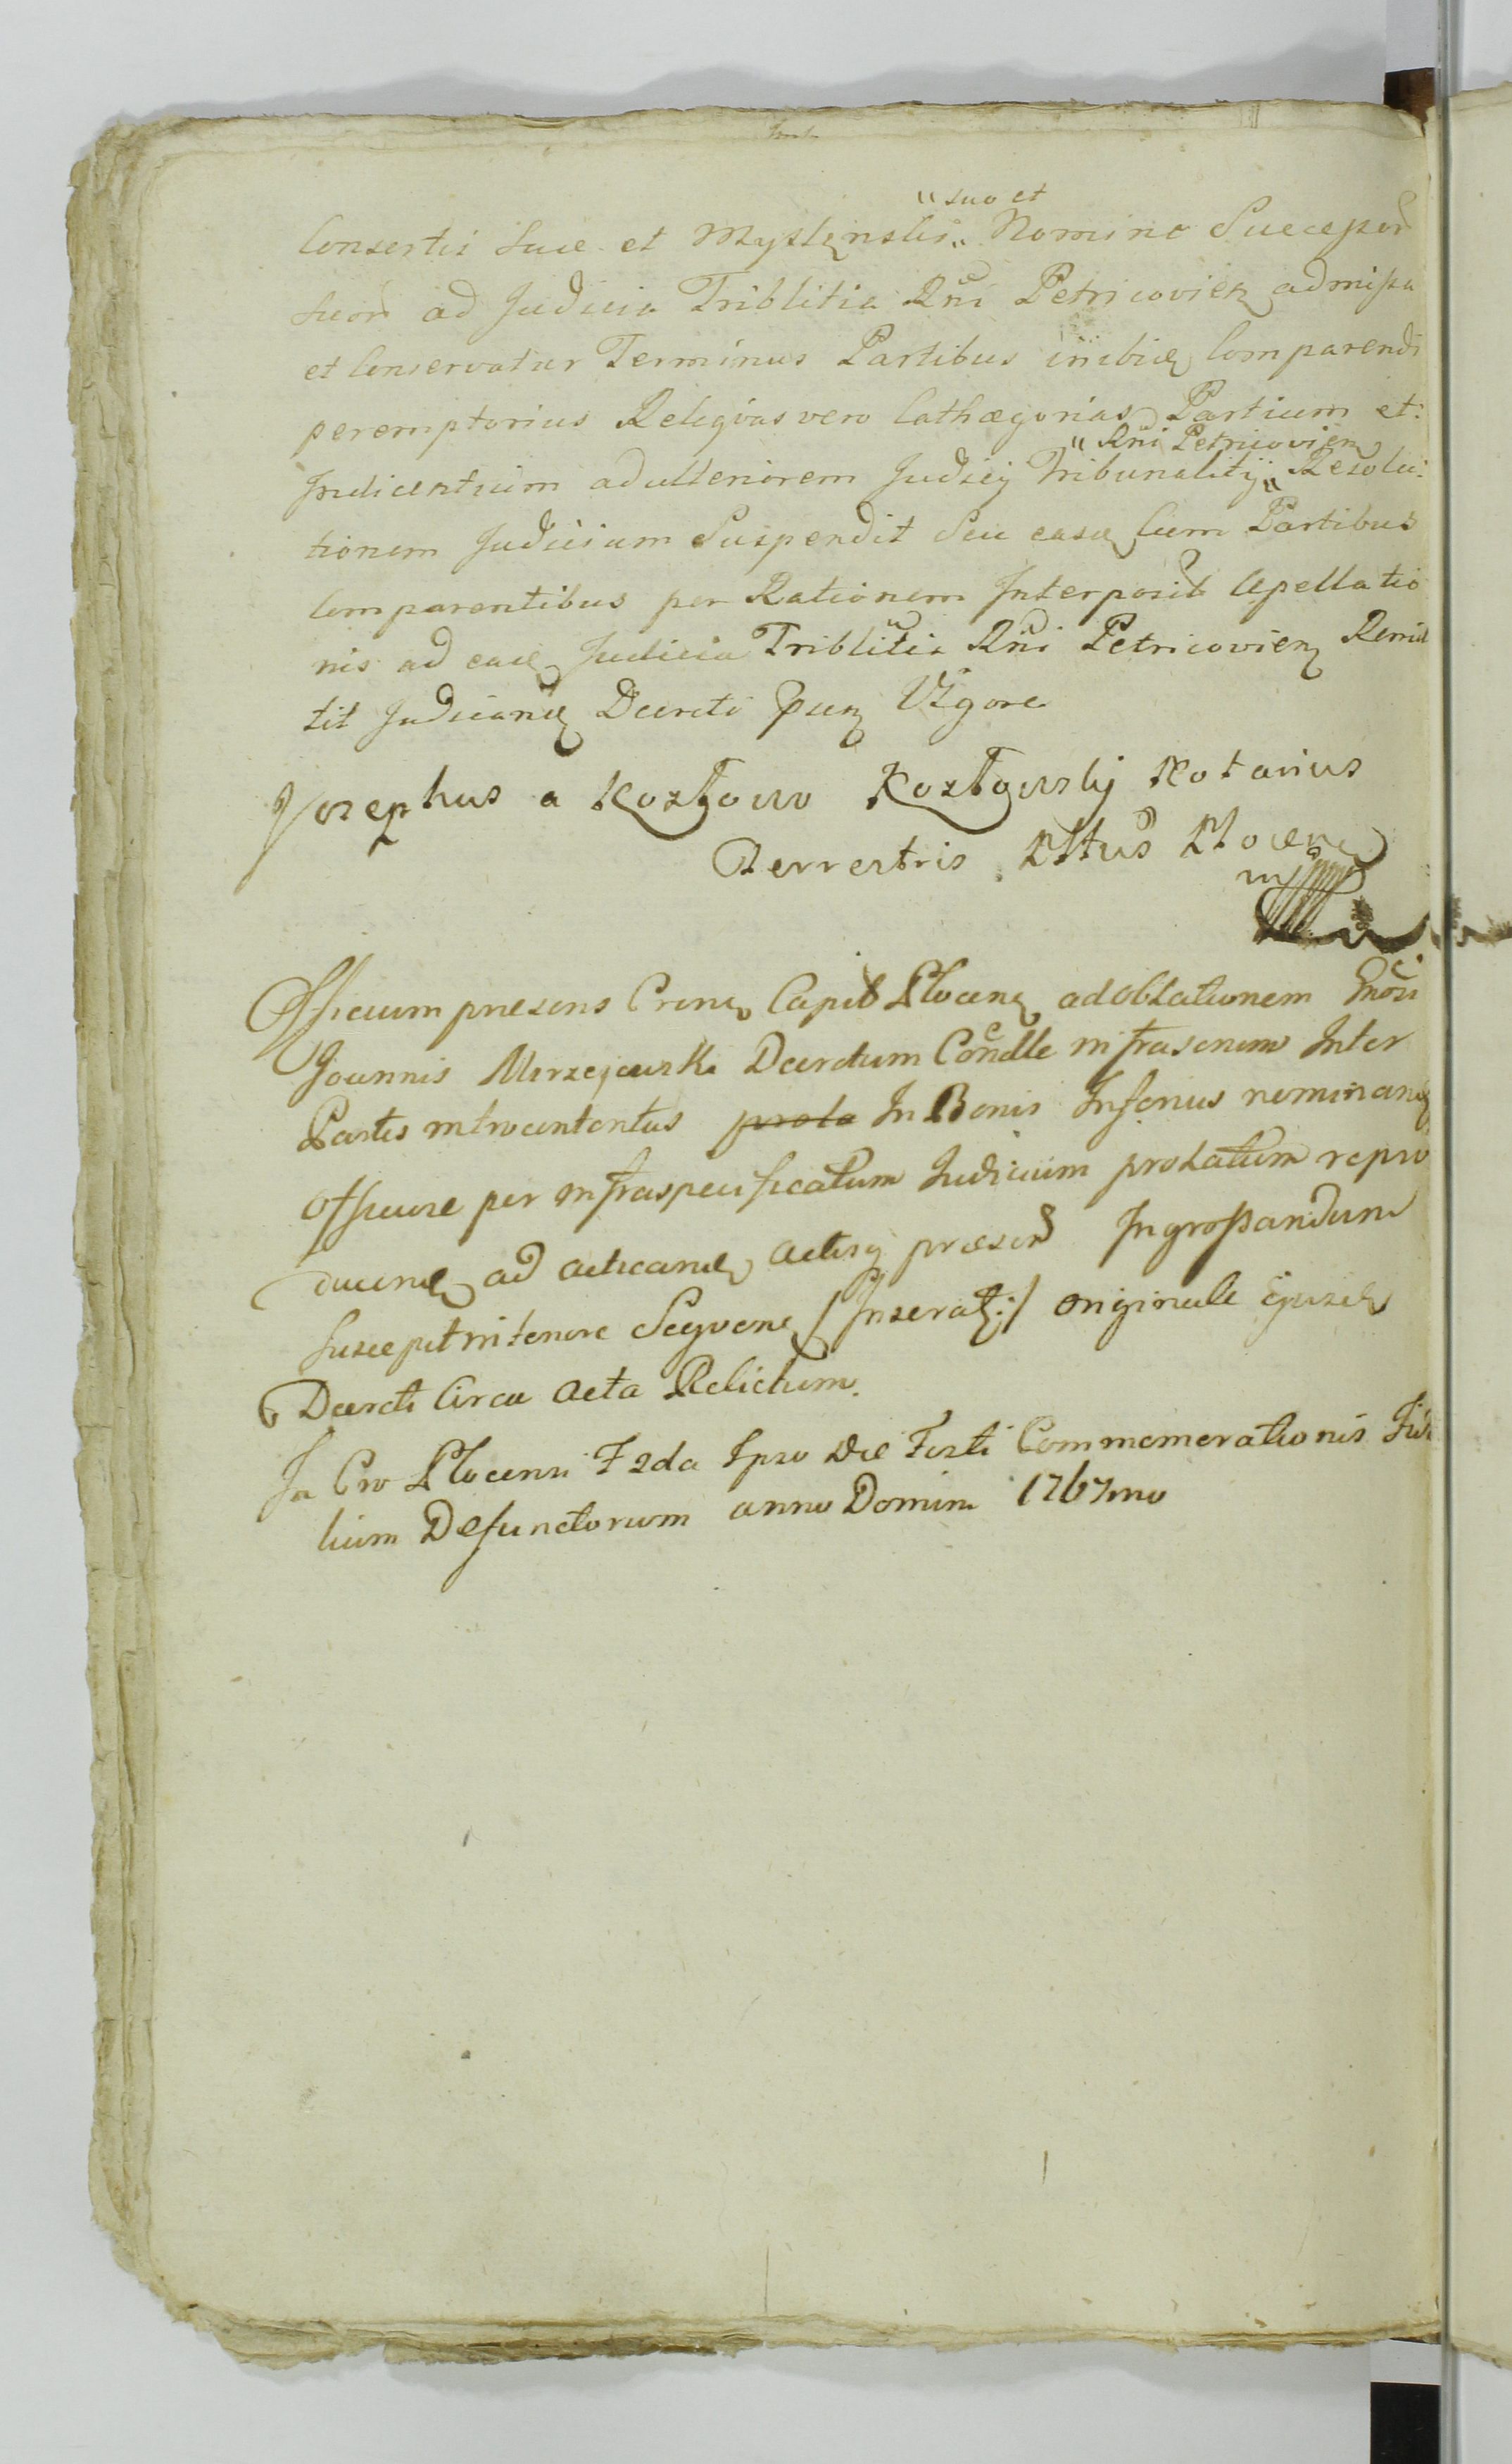 "suo et
Consortis suæ et Myslęnski " Nomine Success̄or
suor ad Judicia Triblitia Rni Petricovien admissa
et Conservatur Terminus Partibus inibiq Comparendi
peremptorius Reliqvas vero Cathægorias Partium et
" Rni Petricovien
Judicantium ad ulteriorem Judicij Tribunalitij " Resolu:
tionem Judicium Suspendit Seu easq Cum Partibus
Comparentibus per Rationem Interposit Apellatio
nis ad eadq Judicia Triblitia Rni Petricovien Remit
tit Judicanq Decreti psen Vigore
Josephus a Kozłowo Kozłowskij Notarius
Terrestris Pltus Plocenq
mp
Officium præsens Crense Capit Plocenq ad oblationem Gnosi
Joannis Mirzejewski Decretum Condle infrascrium Inter
Partes introcontentas prola In Bonis Inferius nominanq
Officiose per infraspecificatum Judicium prolatum repro
ducenq ad acticanq Actisq præsen Ingrossandum
Suscepit in tenore Seqvenq /:Inserat:/ originale ejusdq
Decreti Circa Acta Relictum.
In Cro Plocensi F 2da Ipso Die Festi Commemorationis Fide
lium Defunctorum anno Domini 1767mo